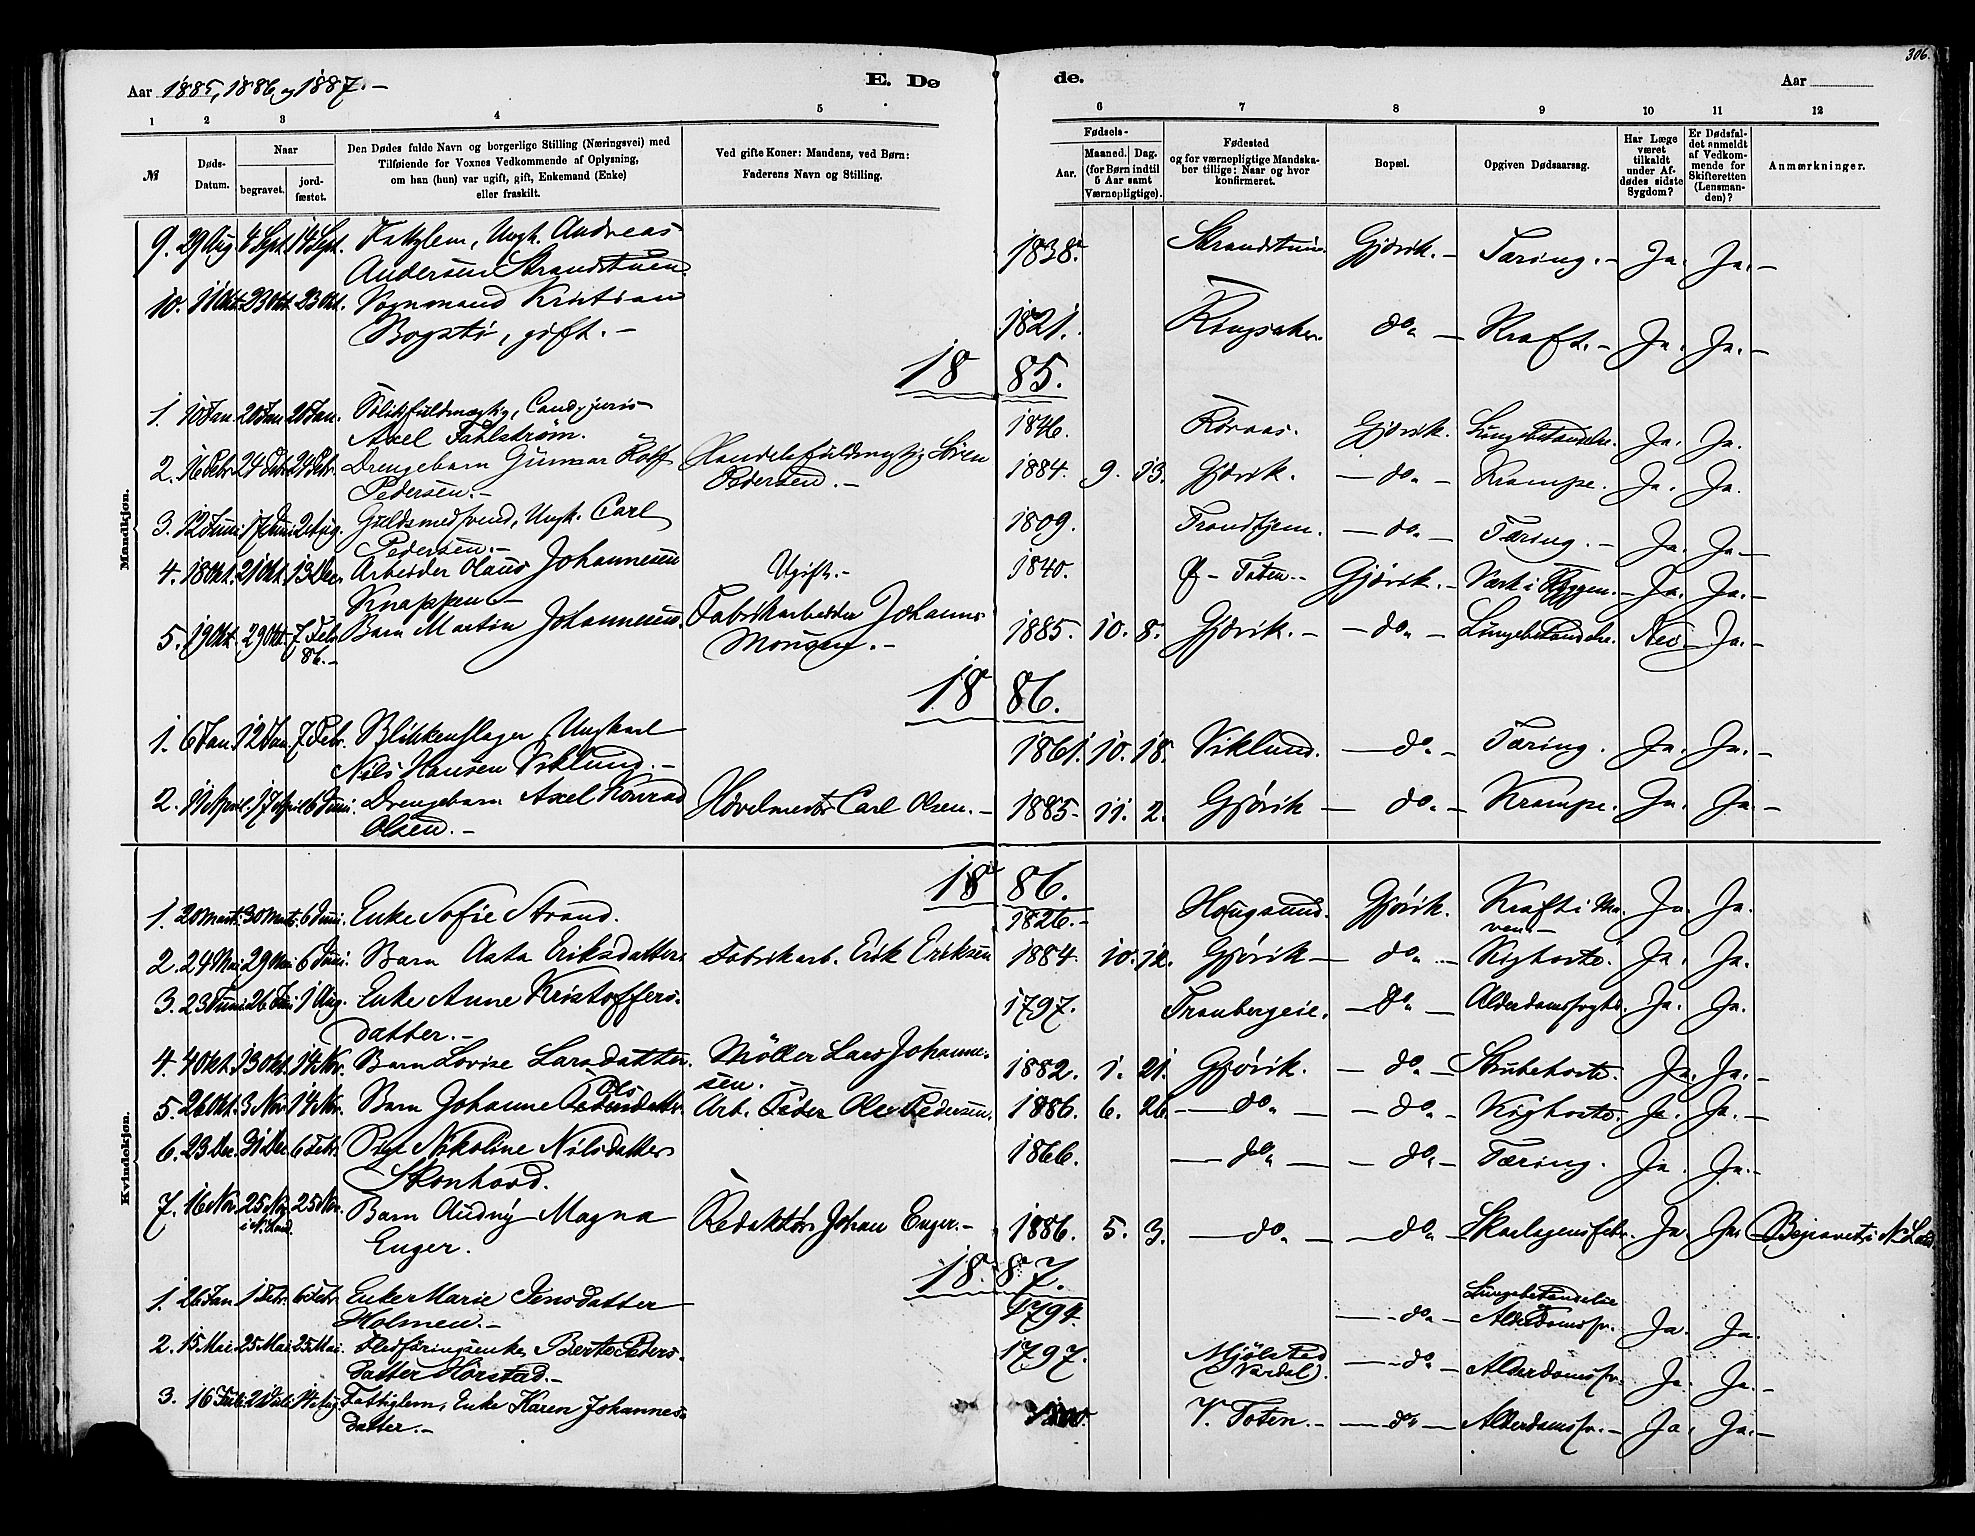 306.
Aar 1885, 1886 og 1887. –
E. Dø
de.
Aar
1 2 3 4 5 6 7 8 9 10 11 12
№
Døds-Datum.
Naar
begravet.
jord-fæstet.
Den Dødes fulde Navn og borgerlige Stilling (Næringsvei) med
Tilføiende for Voxnes Vedkommende af Oplysning,
om han (hun) var ugift, gift, Enkemand (Enke)
eller fraskilt.
Ved gifte Koner: Mandens, ved Børn:
Faderens Navn og Stilling.
Fødsels-
Aar.
Maaned. Dag.
(for Børn indtil
5 Aar samt
Værnepligtige).
Fødested
og for værnepligtige Mandska-
ber tillige: Naar og hvor
konfirmeret.
Bopæl.
Opgiven Dødsaarsag.
Har Læge
været
tilkaldt
under Af-
dødes sidste
Sygdom?
Er Dødsfal-
det anmeldt
af Vedkom-
mende for
Skifteretten
(Lensman-
den)?
Anmærkninger.
Mandkjøn.
9. 29 Aug. 4 Sept. 14 Sept. Fattiglem, Ungk. Andreas 1838. Strandstuen. Gjøvik. – Tæring. – Ja. Ja. –
Andersen Strandstuen.
10. 11 Okt. 23 Okt. 23 Okt. Vognmand Kristian 1821. Ringsaker. do. – Kræft. – Ja. Ja. –
Bogstø, gift. –
1885.
1. 10 Jan. 20 Jan. 20 Jan. Politifuldmægtig, Cand. juris 1846. Røraas. Gjøvik. Lungebetændelse. Ja. Ja.
Axel Fahlstrøm.
2. 16 Febr. 24 Febr. 24 Febr. Drengebarn Gunnar Rolf Handelsfuldmægtig Søren 1884. 9. 13. Gjøvik. – do. – Krampe. Ja. Ja.
Pedersen. – Pedersen. –
3. 12 Juni 17 Juni 2 Aug. Guldsmedsvend, Ungk. Carl 1809. Trondhjem. – do. – Tæring. – Ja. Ja –
Pedersen. –
4. 18 Okt. 21 Okt. 13 Dec. Arbeider Olaus Johannesen Ugift. – 1840. Ø – Toten. – Gjøvik. – Værk i Ryggen. – Ja. Ja. –
Knappen –
5. 19 Okt. 29 Okt. 7 Feb. Barn Martin Johannesen. Fabrikarbeider Johannes 1885. 10. 8. Gjøvik. – – do. – Lungebetændelse. Nei – Ja. –
86. – Monsen. –
1886.
1. 6 Jan. 12 Jan. 7 Febr. Blikkenslager Ungkarl 1861. 10. 18. Viklund. – do. – Tæring. Ja. Ja. –
Nils Hansen Viklund. –
2. 11 April. 17 April 6 Juni. Drengebarn Axel Konrad Høvelmester Carl Olsen. – 1885 – 11. 2. Gjøvik – do. – Krampe. Ja. Ja. –
Olsen. –
Kvindekjøn.
1886.
1. 20 Marts. 30 Marts. 6 Juni. Enke Sofie Strand. 1826. – Hougsund. Gjøvik. Kræft i Ma- Ja. Ja.
ven –
2. 24 Mai 29 Mai 6 Juni. Barn Asta Eriksdatter. Fabrikarb. Erik Eriksen 1884. 10. 12. Gjøvik – do. – Kighoste. Ja. Ja.
3. 23 Juni 26 Juni 1 Aug. Enke Anne Kristoffers- 1797. Tranbergeie. – do. – Alderdomssvaghed. Ja. Ja.
datter. –
4. 4 Okt. 13 Okt. 14 Nov. Barn Lovise Larsdatter. Møller Lars Johanne- 1882. 1. 21. Gjøvik. – do. – Strubehoste. Ja. Ja. –
sen.
5. 26 Okt. 3 Nov. 14 Nov. Barn Johanne Pedersdatter. Arb. Peder Ols Pedersen. 1886. 6. 26. – do. – – do. – Kighoste. Ja. Ja. –
6. 23 Dec. 31 Dec 6 Febr. Pige Nikoline Nilsdatter 1866. – do. – – do. – Tæring. Ja. Ja. –
Skonhord.
7. 16 Nov. 25 Nov. 25 Nov. Barn Audny Magna Redaktør Johan Enger. – 1886. 5. 3. – do. – – do. – Skarlagensfeber. Ja. Ja. Begravet i N. Land.
i N. Land. Enger.
1887.
1. 26 Jan 1 Febr. 6 Febr. Enke Marie Jensdatter 1794. – do. – Lungebetændelse Ja. Ja.
Holmen. – Alderdomssv. –
2. 15 Mai 25 Mai 25 Mai. Enke Berte Peders- 1797. Mjølstad – do. – Alderdomssv. Ja. Ja. –
datter Hørstad. – (Vardal).
3. 16 Juli 21 Juli 14 Aug. Fattiglem, Enke Karen Johannes- 1800. V. Toten. – – do. – Alderdomssv. – Ja. Ja. –
datter. –